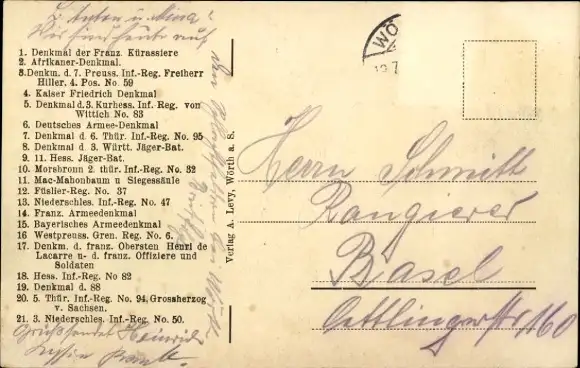 Wir sind heute auf
den Schlachtfeldern bei Wörth
1. Denkmal der Franz. Kürassiere
2. Afrikaner-Denkmal.
3. Denkm. d. 7. Preuss. Inf.-Reg. Freiherr
Hiller. 4. Pos. No. 59
4. Kaiser Friedrich Denkmal
5. Denkmal d. 3. Kurhess. Inf. Reg. von
Wittich No. 83
6. Deutsches Armee-Denkmal
7. Denkmal d 6. Thür. Inf.-Reg. No. 95
8. Denkmal d. 3. Württ. Jäger-Bat.
9. 11. Hess. Jäger-Bat.
10. Morsbronn 2. thür. Inf.-Reg. No. 32
11. Mac-Mahonbaum u Siegessäule
12. Füslier-Reg. No. 37
13. Niederschles. Inf.-Reg. No. 47
14. Franz. Armeedenkmal
15. Bayerisches Armeedenkmal
16 Westpreuss. Gren. Reg. No. 6.
17. Denkm. d. franz. Obersten Henri de
Lacarre u- d. franz. Offiziere und
Soldaten
18. Hess. Inf.-Reg. No 82
19. Denkmal d. 88
20. 5. Thür. Inf.-Reg. No. 94. Grossherzog
v. Sachsen.
21. 3. Niederschles. Inf.-Reg. No. 50.
Heinrich
Verlag A. Levy, Wörth a. S.
WÖ
Herrn Schmitt
Rangierer
Basel
Oettlingerstr 160